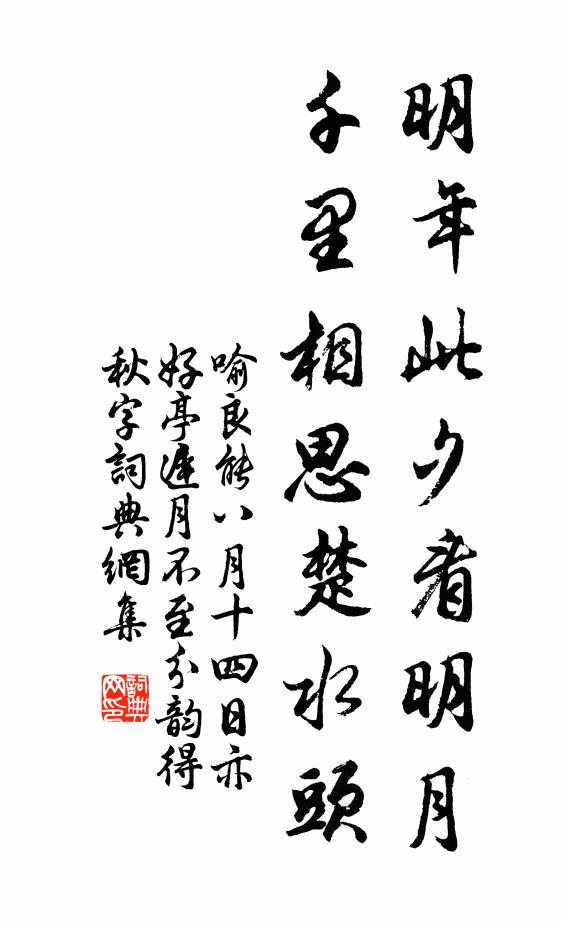 明年此夕看明月
千里相思楚水頭
喻良能八月十四日亦
好亭遲月不至分韵得
秋字詞典網集
詞典
网印